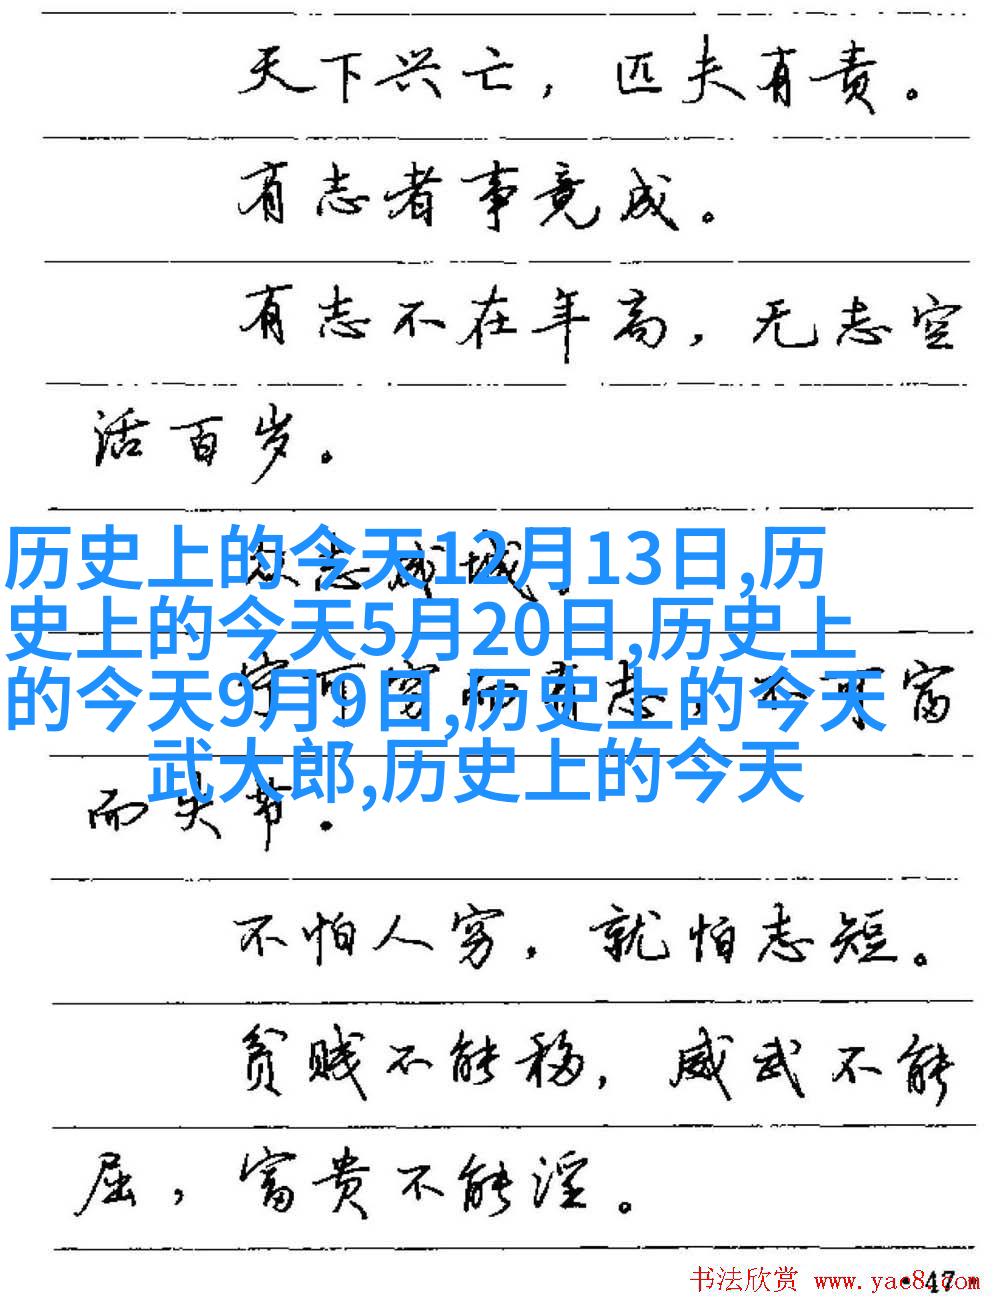 天下兴亡，匹夫有责。
有志者事竟成。
有志不在年高，无志空
活百岁。
众志成城。
历史上的今天12月13日,历
史上的今天5月20日,历史上
宁可穷而有志，不可富
的今天9月9日,历史上的今天
武大郎,历史上的今天
而失节。
不怕人穷，就怕志短。
贫贱不能移，威武不能
屈，富贵不能淫。
书法欣赏 www.yac8.com
·47·